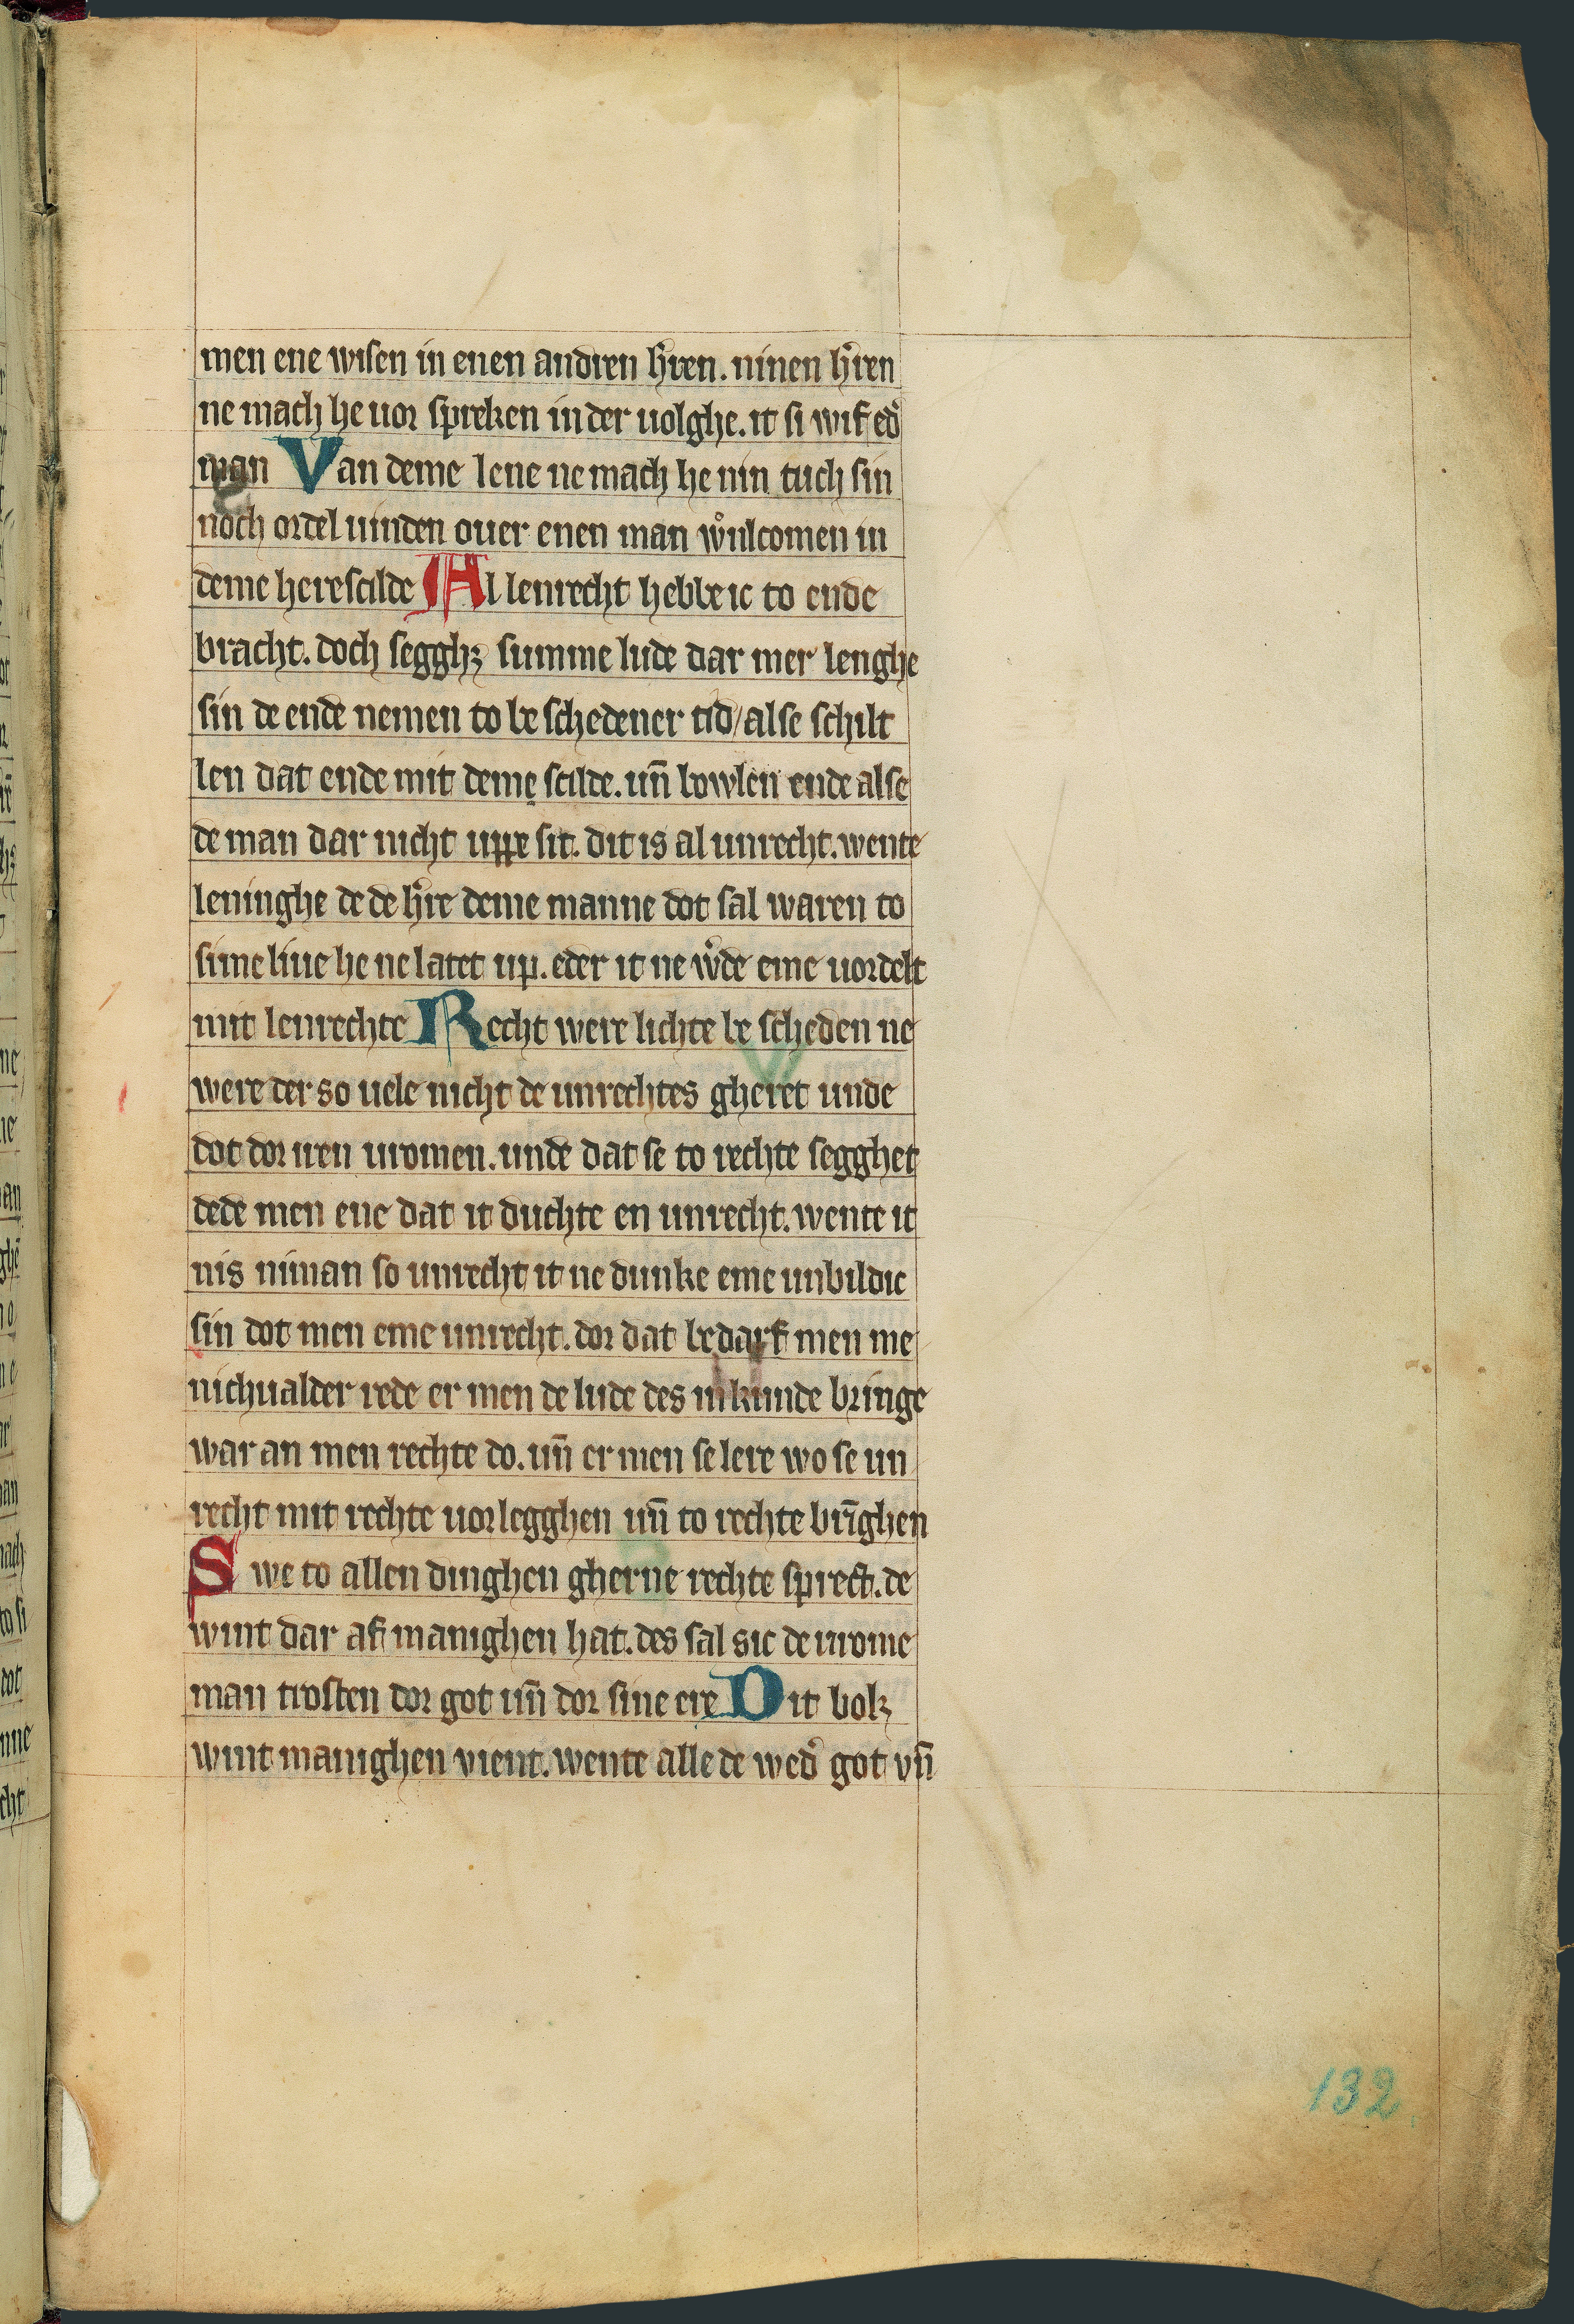 men ene wisen in enen andren h̾ren. ninen h̾ren
ne mach he uor spreken in der uolghe. it si wif ed̾
man Van deme lene ne mach he nin tuch sin
noch ordel uinden ouer enen man wͦnlcomen in
deme herescilde Al lenrecht hebbe ic to ende
bracht. doch segghꝫ summe lude dar mer lenghe
sin de ende nemen to be schedener tid/alse schilt
len dat ende mit deme scilde. un̄ bowlen ende alse
de man dar nicht uppe sit. dit is al unrecht. wente
leninghe de de h̾re deme manne dot sal waren to
sime liue he ne latet up. eder it ne w̾de eme uordelt
mit lenrechte Recht were lichte be scheden ne
were der so uele nicht de unrechtes gheret unde
dot dor uren uromen. unde dat se to rechte segghet
dede men ene dat it duchte en unrecht. wente it
nis niman so unrecht it ne dunke eme unbildic
sin dot men eme unrecht. dor dat bedarf men me
nichualder rede er men de lude des inkunde bringe
war an men rechte do. un̄ er men se lere wo se un
recht mit rechte uorlegghen un̄ to rechte brīghen
Swe to allen dinghen gherne rechte sprect. de
wint dar af manighen hat. des sal sic de urome
man trosten dor got un̄ dor sine ere Dit bok
wint manighen vient. wente alle de wed̾ got vn̄
132.